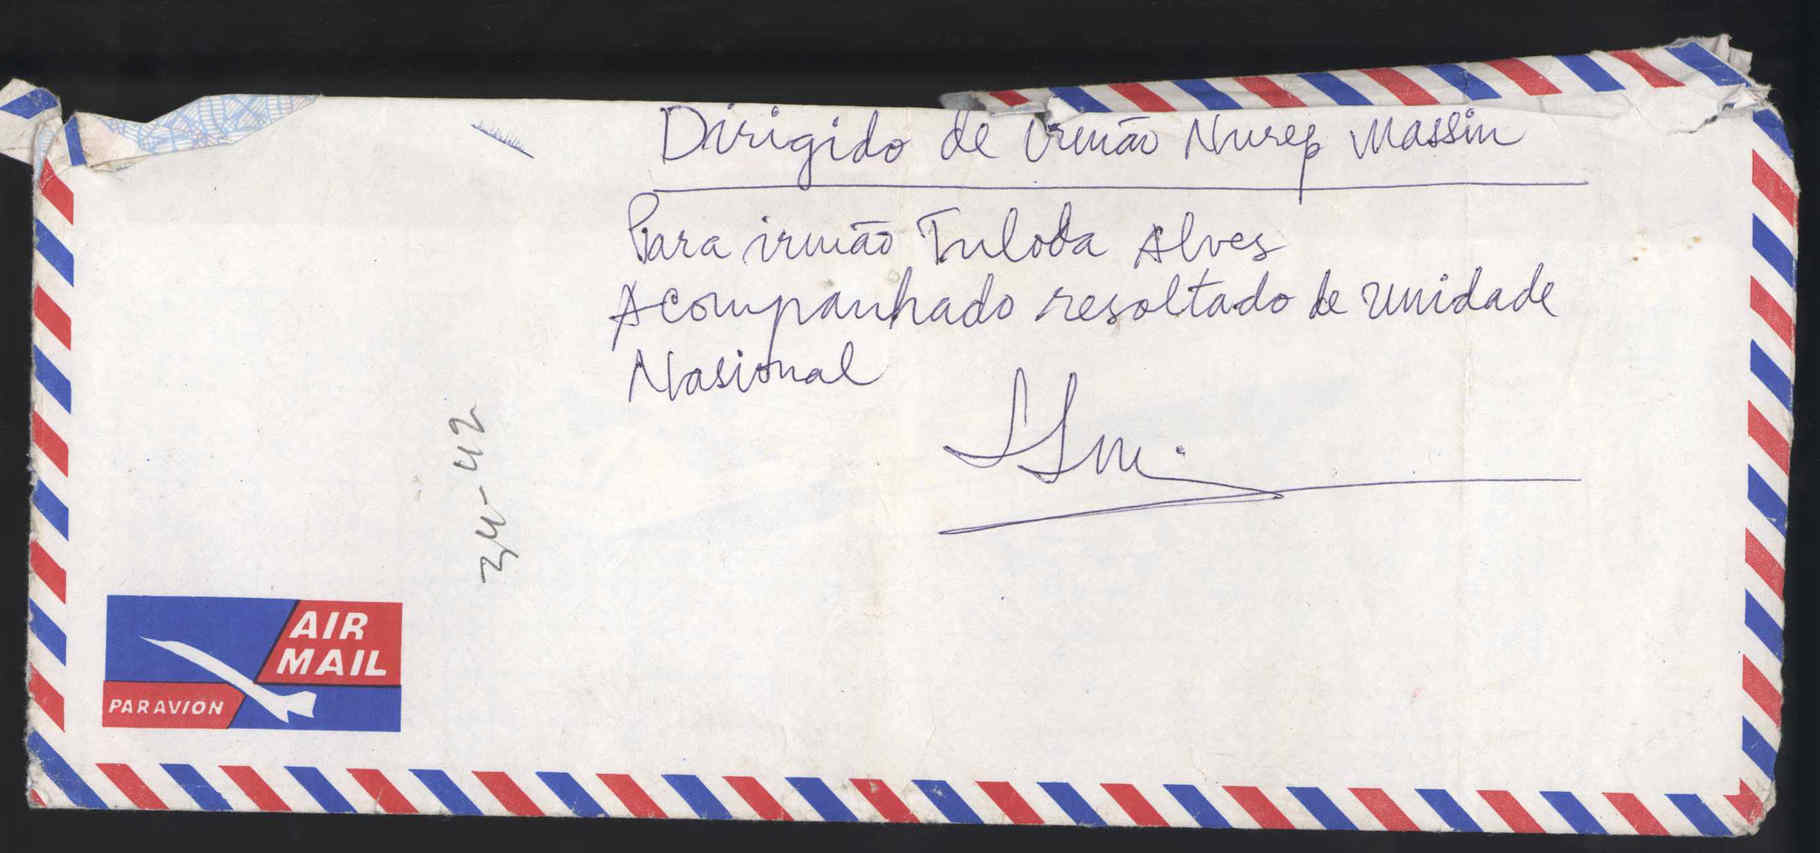 Dirigido de irmão Nurep Massin
Para irmão Tuloda Alves
Acompanhado resoltado de unidade
Nasional
34-42
AIR
MAIL
PAR AVION